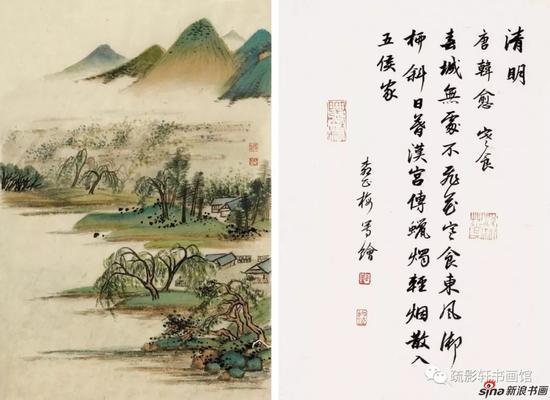 清明
唐韓愈 寒食
春城無處不飛花寒食東風御
柳斜日暮漢宮傳蠟燭輕烟散入
五侯家
正梅寫繪
疏影轩书画馆
sina 新浪书画